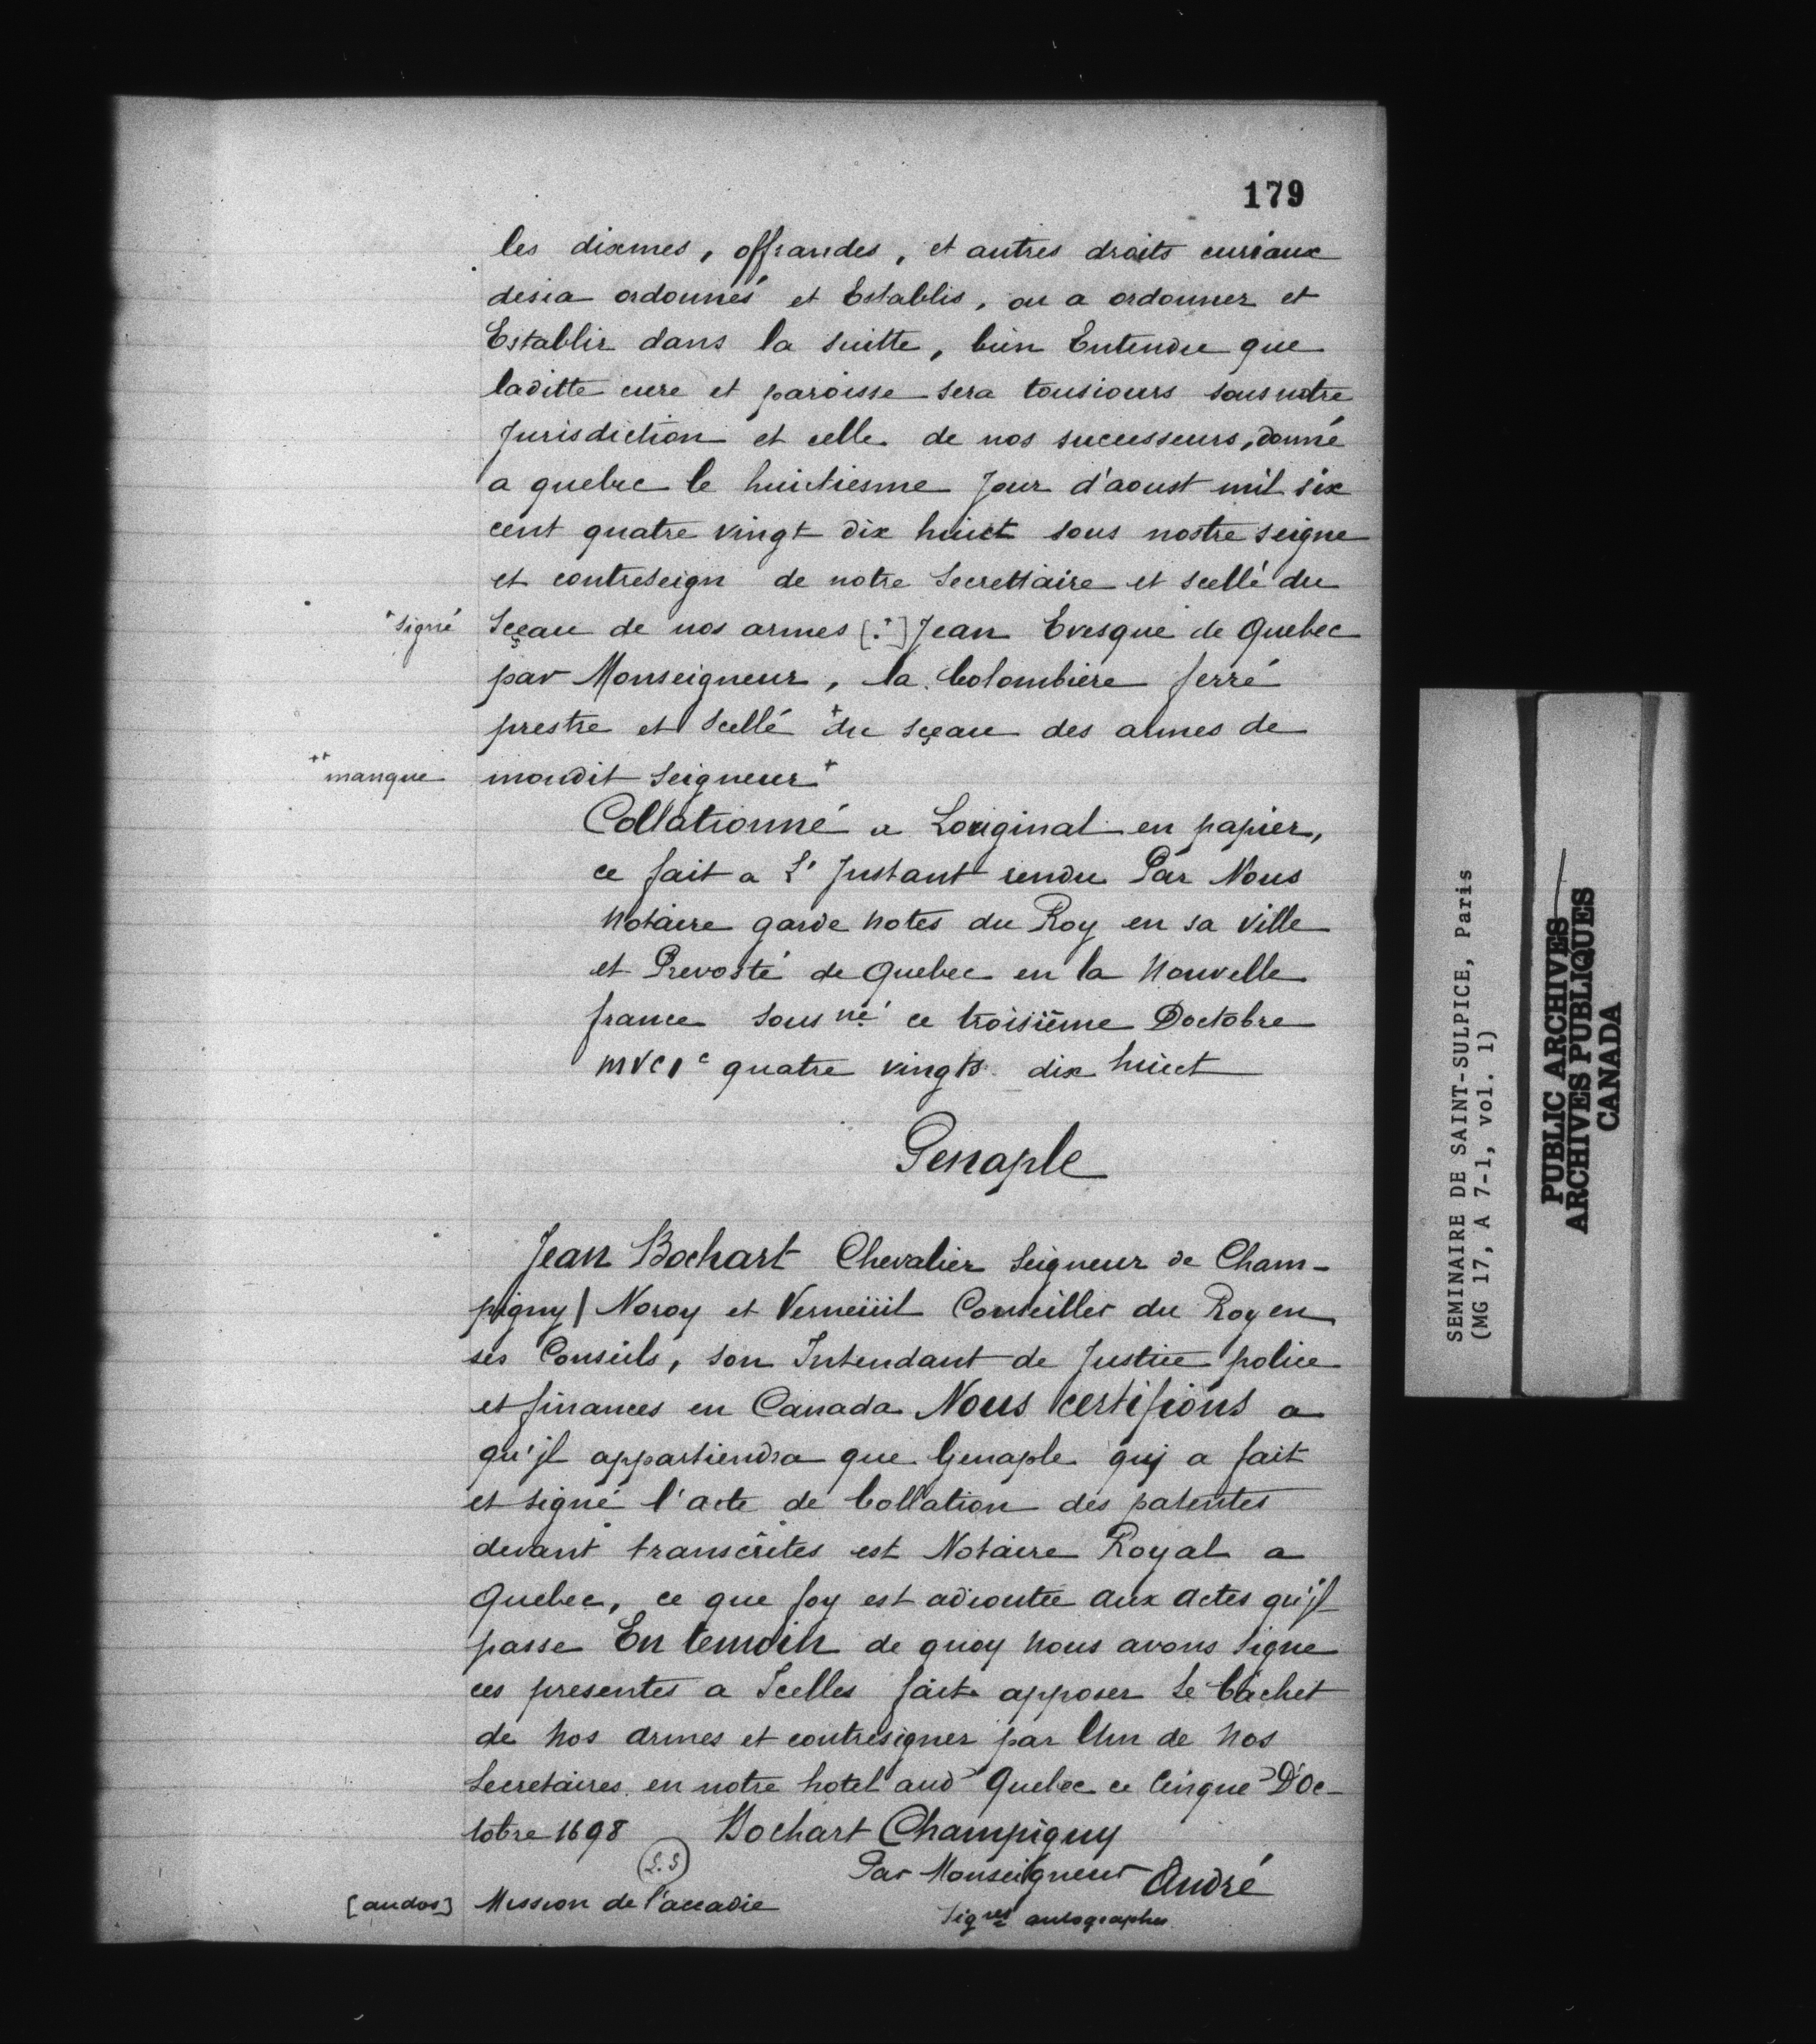 179
les dixmes, offrandes, et autres droits curiaux
desia ordonnés et Establis, ou a ordonner et
Establir dans la suitte, bien Entendu que
laditte cure et paroisse sera tousiours sous notre
Jurisdiction et celle de nos successeurs, donné
a quebec le huictiesme Jour d'aoust mil six
cent quatre vingt dix huict sous nostre seigne
et contreseign de notre Secrettaire et scellé du
+ signé
Sçeau de nos armes [+] Jean Evesque de Quebec
par Monseigneur, la Colombiere serré
prestre et Scellé + du sçeau des armes de
++ manque
mondit Seigneur +
Collationné a Loriginal en papier,
ce fait a L'Instant rendu Par Nous
Notaire garde notes du Roy en sa Ville
et Prevosté de Quebec en la Nouvelle
france Sous né ce troisiême Doctobre
mvc1c quatre vingts dix huict
Genaple
Jean Bochart Chevalier Seigneur de Cham-
pigny / Noroy et Verneüil Conseiller du Roy en
ses Conseils, son Intendant de Justice police
et finances en Canada Nous Certifions a
qu'jl appartiendra que Genaple quj a fait
et signé l'acte de Collation des patentes
devant transcrites est Notaire Royal a
Quebec, ce que foy est adioutée aux actes qu'jl
passe En temoin de quoy Nous avons Signe
ces presentes a Icelles fait apposer Le Cachet
de Nos armes et contresigner par Un de Nos
Secretaires en notre hotel aud Quebec ce Cinque D'Oc-
tobre 1698 Bochart Champigny
(L.S)
Par Monseigneur André
[au dos] Mission de l'accadie
Sigres autographes
SEMINAIRE DE SAINT-SULPICE, Paris
(MG 17, A 7-1, vol. 1)
PUBLIC ARCHIVES
ARCHIVES PUBLIQUES
CANADA